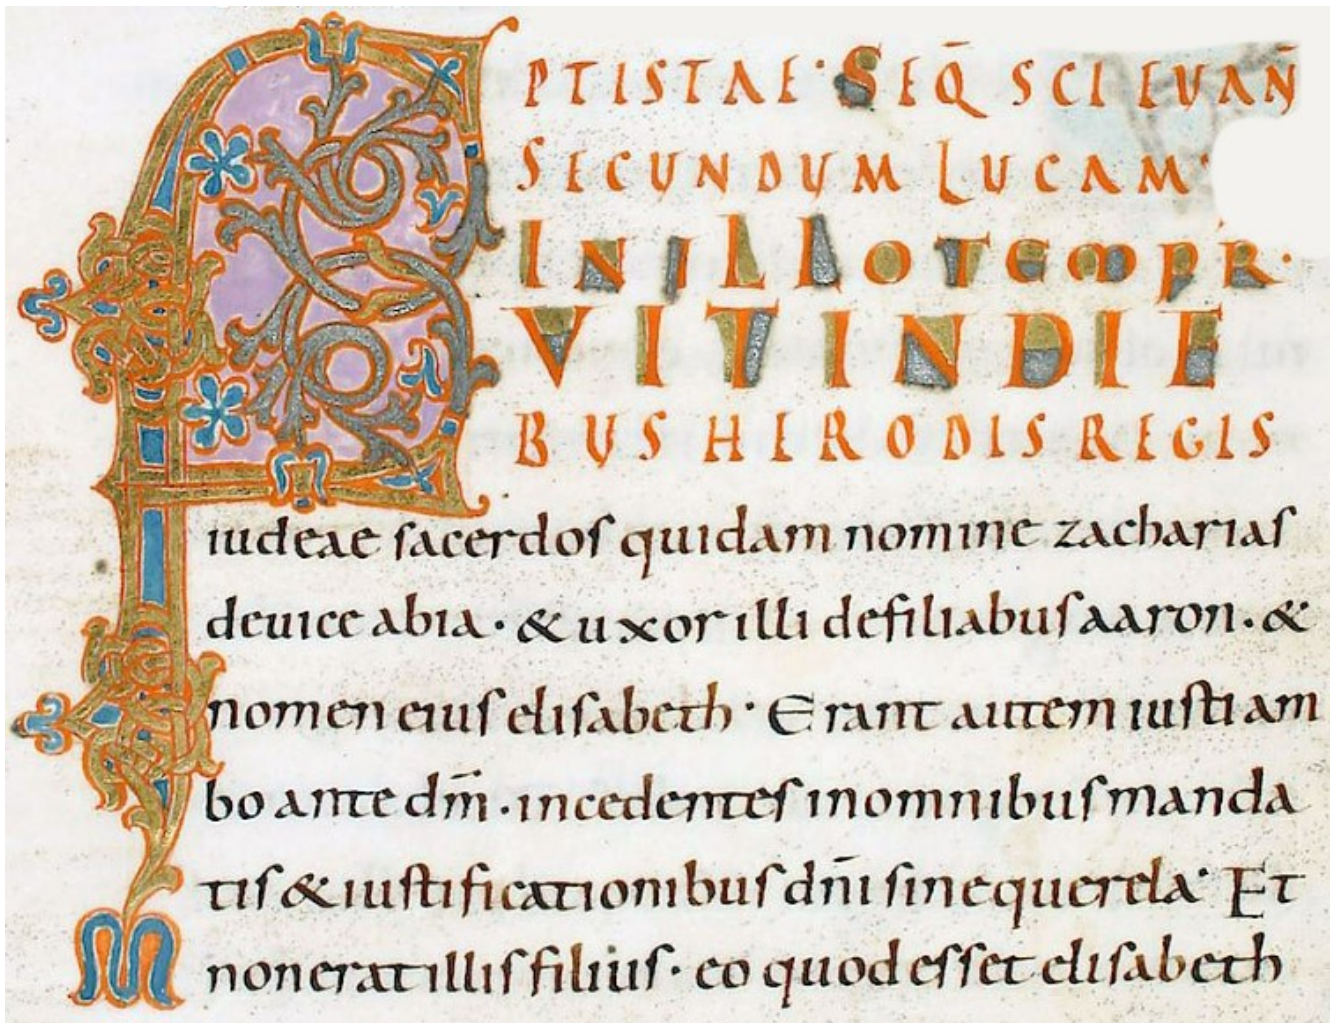 PTISTAE· SEQ̄ SCI EUAN̄
SECUNDUM LUCAM·
IN ILLO TEMPR̄·
FUIT IN DIE
BUS HERODIS REGIS
iudeae sacerdos quidam nomine zacharias
deuice abia· & uxor illi defiliabus aaron· &
nomen eius elisabeth· Erant autem iusti am
bo ante dm̄· incedentes inomnibus manda
tis & iustificationibus dn̄i sine querela· Et
non erat illis filius· eo quod esset elisabeth